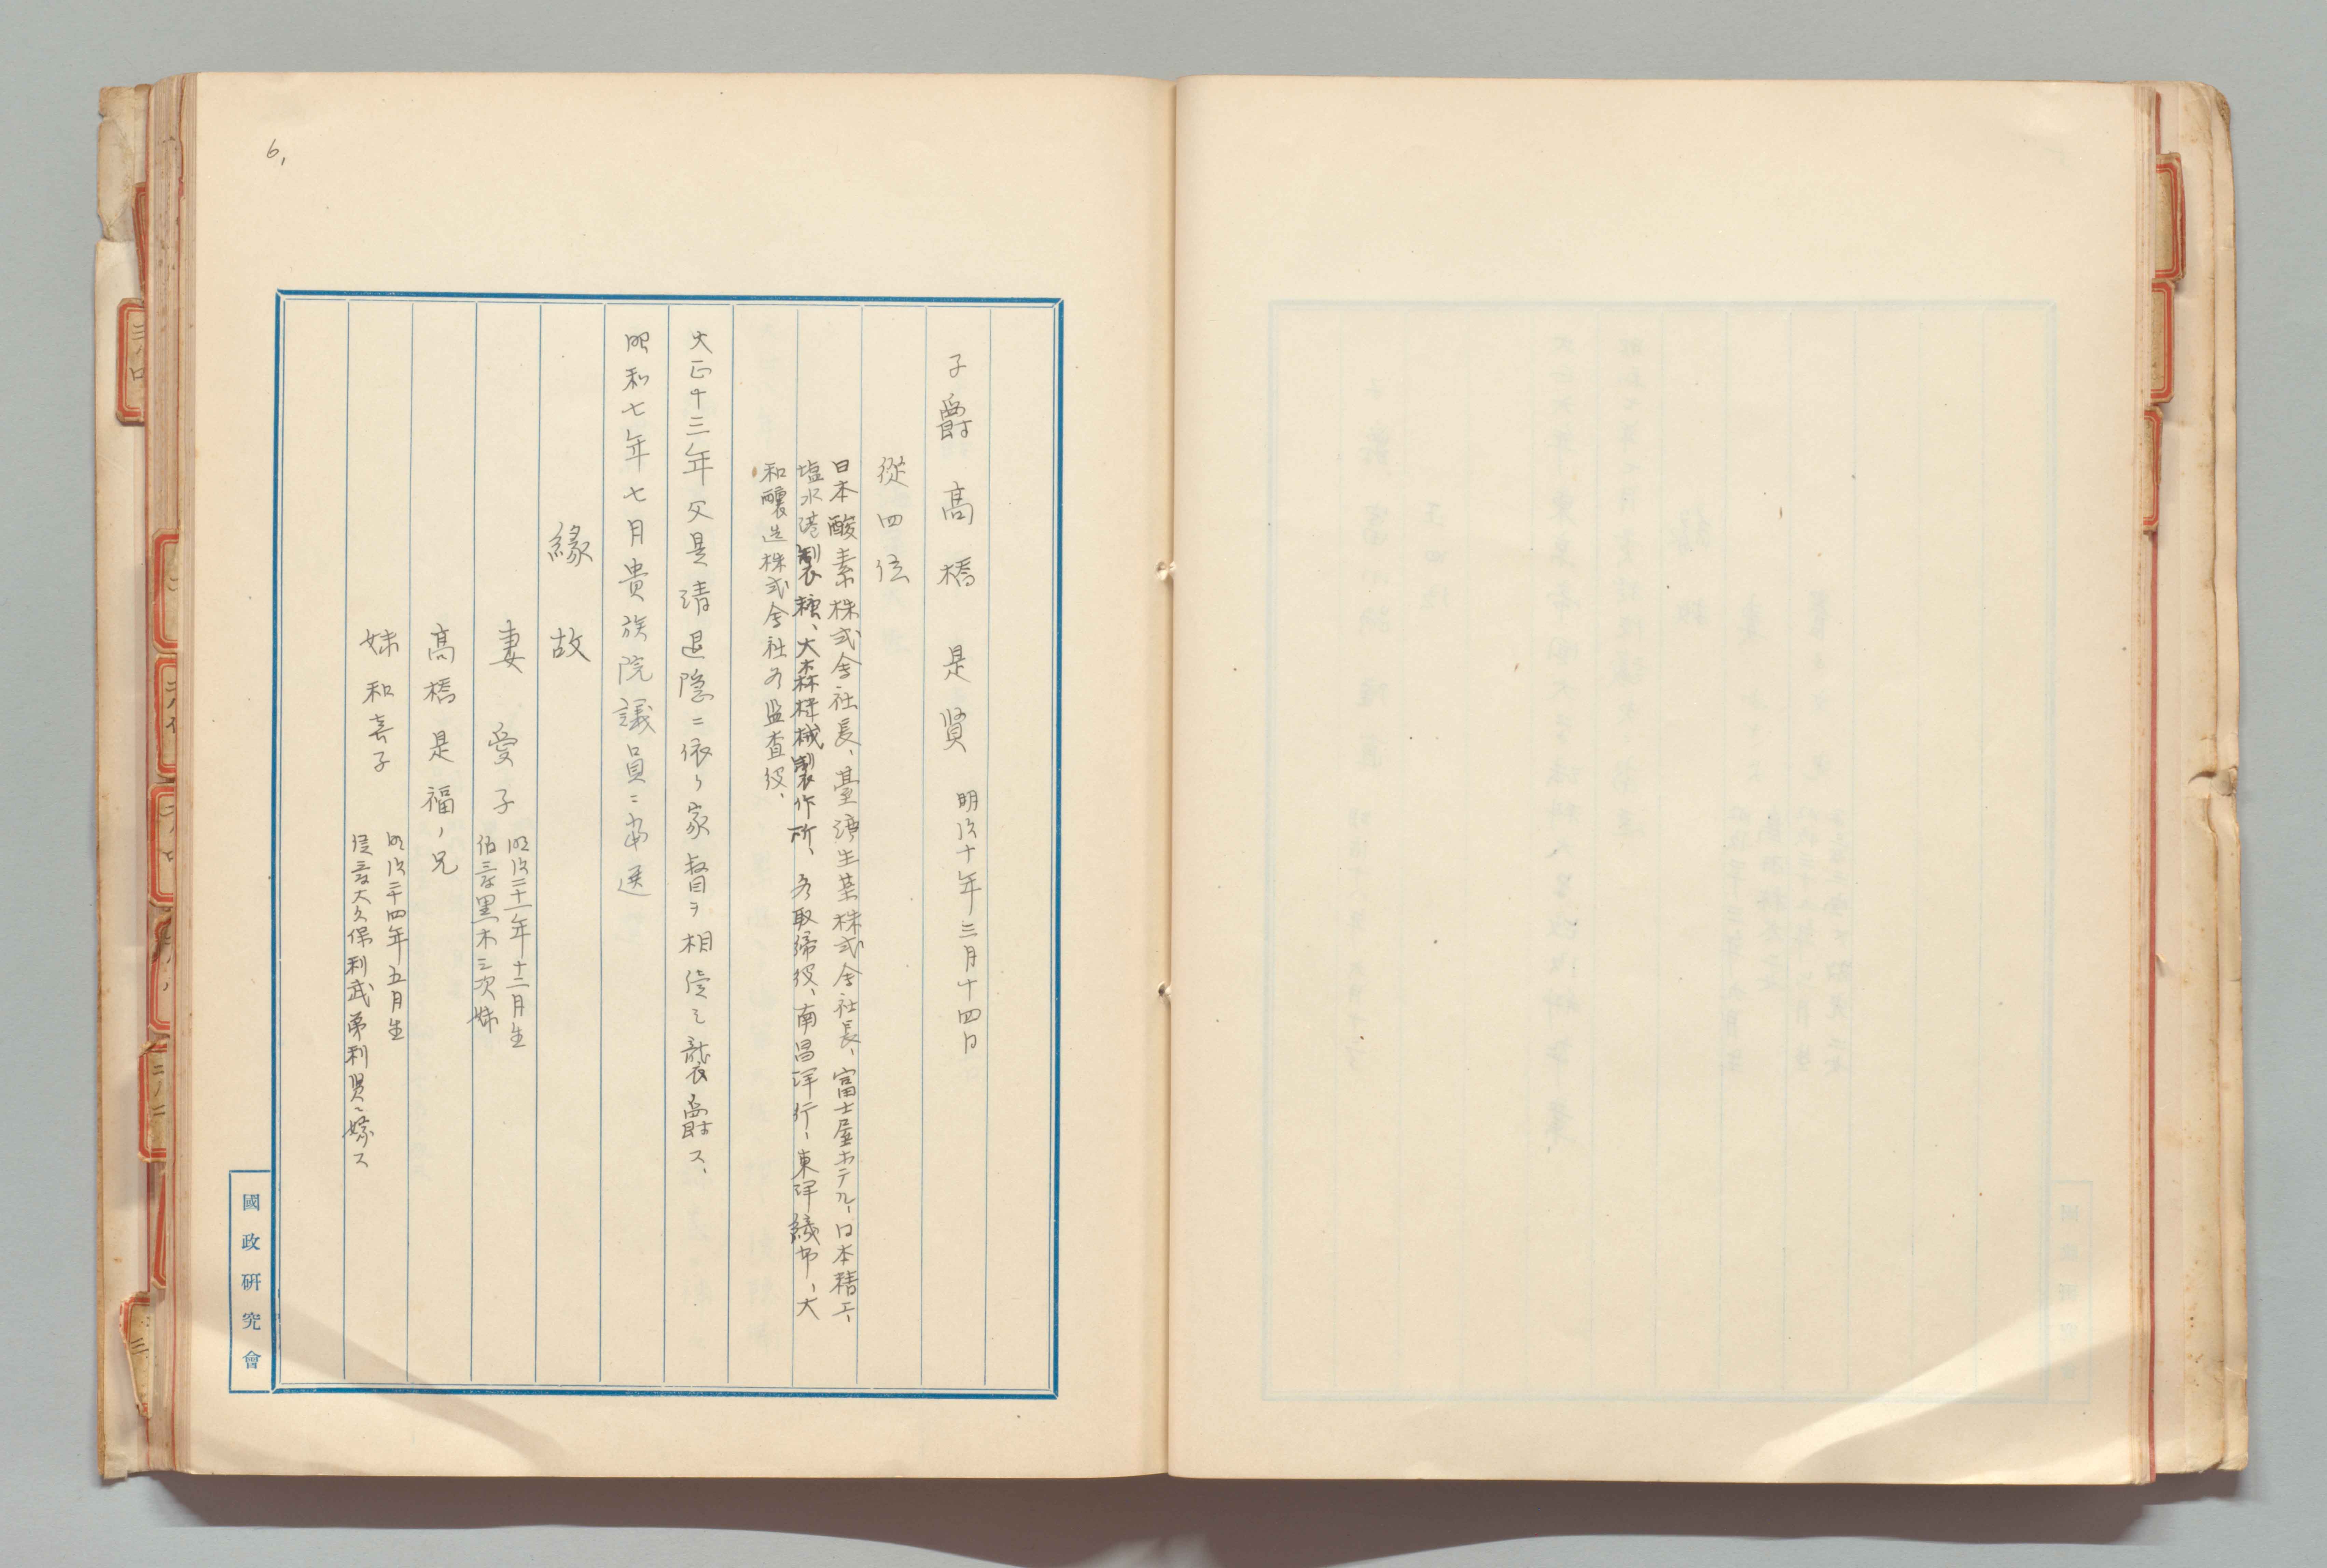 6,
子爵 高橋 是賢 明治十年三月十四日
從四位
日本酸素株式会社長、臺湾生薬株式会社長、富士屋ホテル、日本精工、
塩水港製糖、大森機械製作所、各取締役、南昌洋行、東洋綿布、大
和釀造株式会社各監査役、
大正十三年父是清退隠ニ依リ家督ヲ相続シ襲爵ス、
昭和七年七月貴族院議員ニ当選
緣故
妻 愛子 明治二十一年十二月生
伯、三女黒木三次妹
高橋是福ノ兄
妹 和喜子 明治二十四年五月生
侯、三女大久保利武弟利賢ニ嫁ス
國政研究會